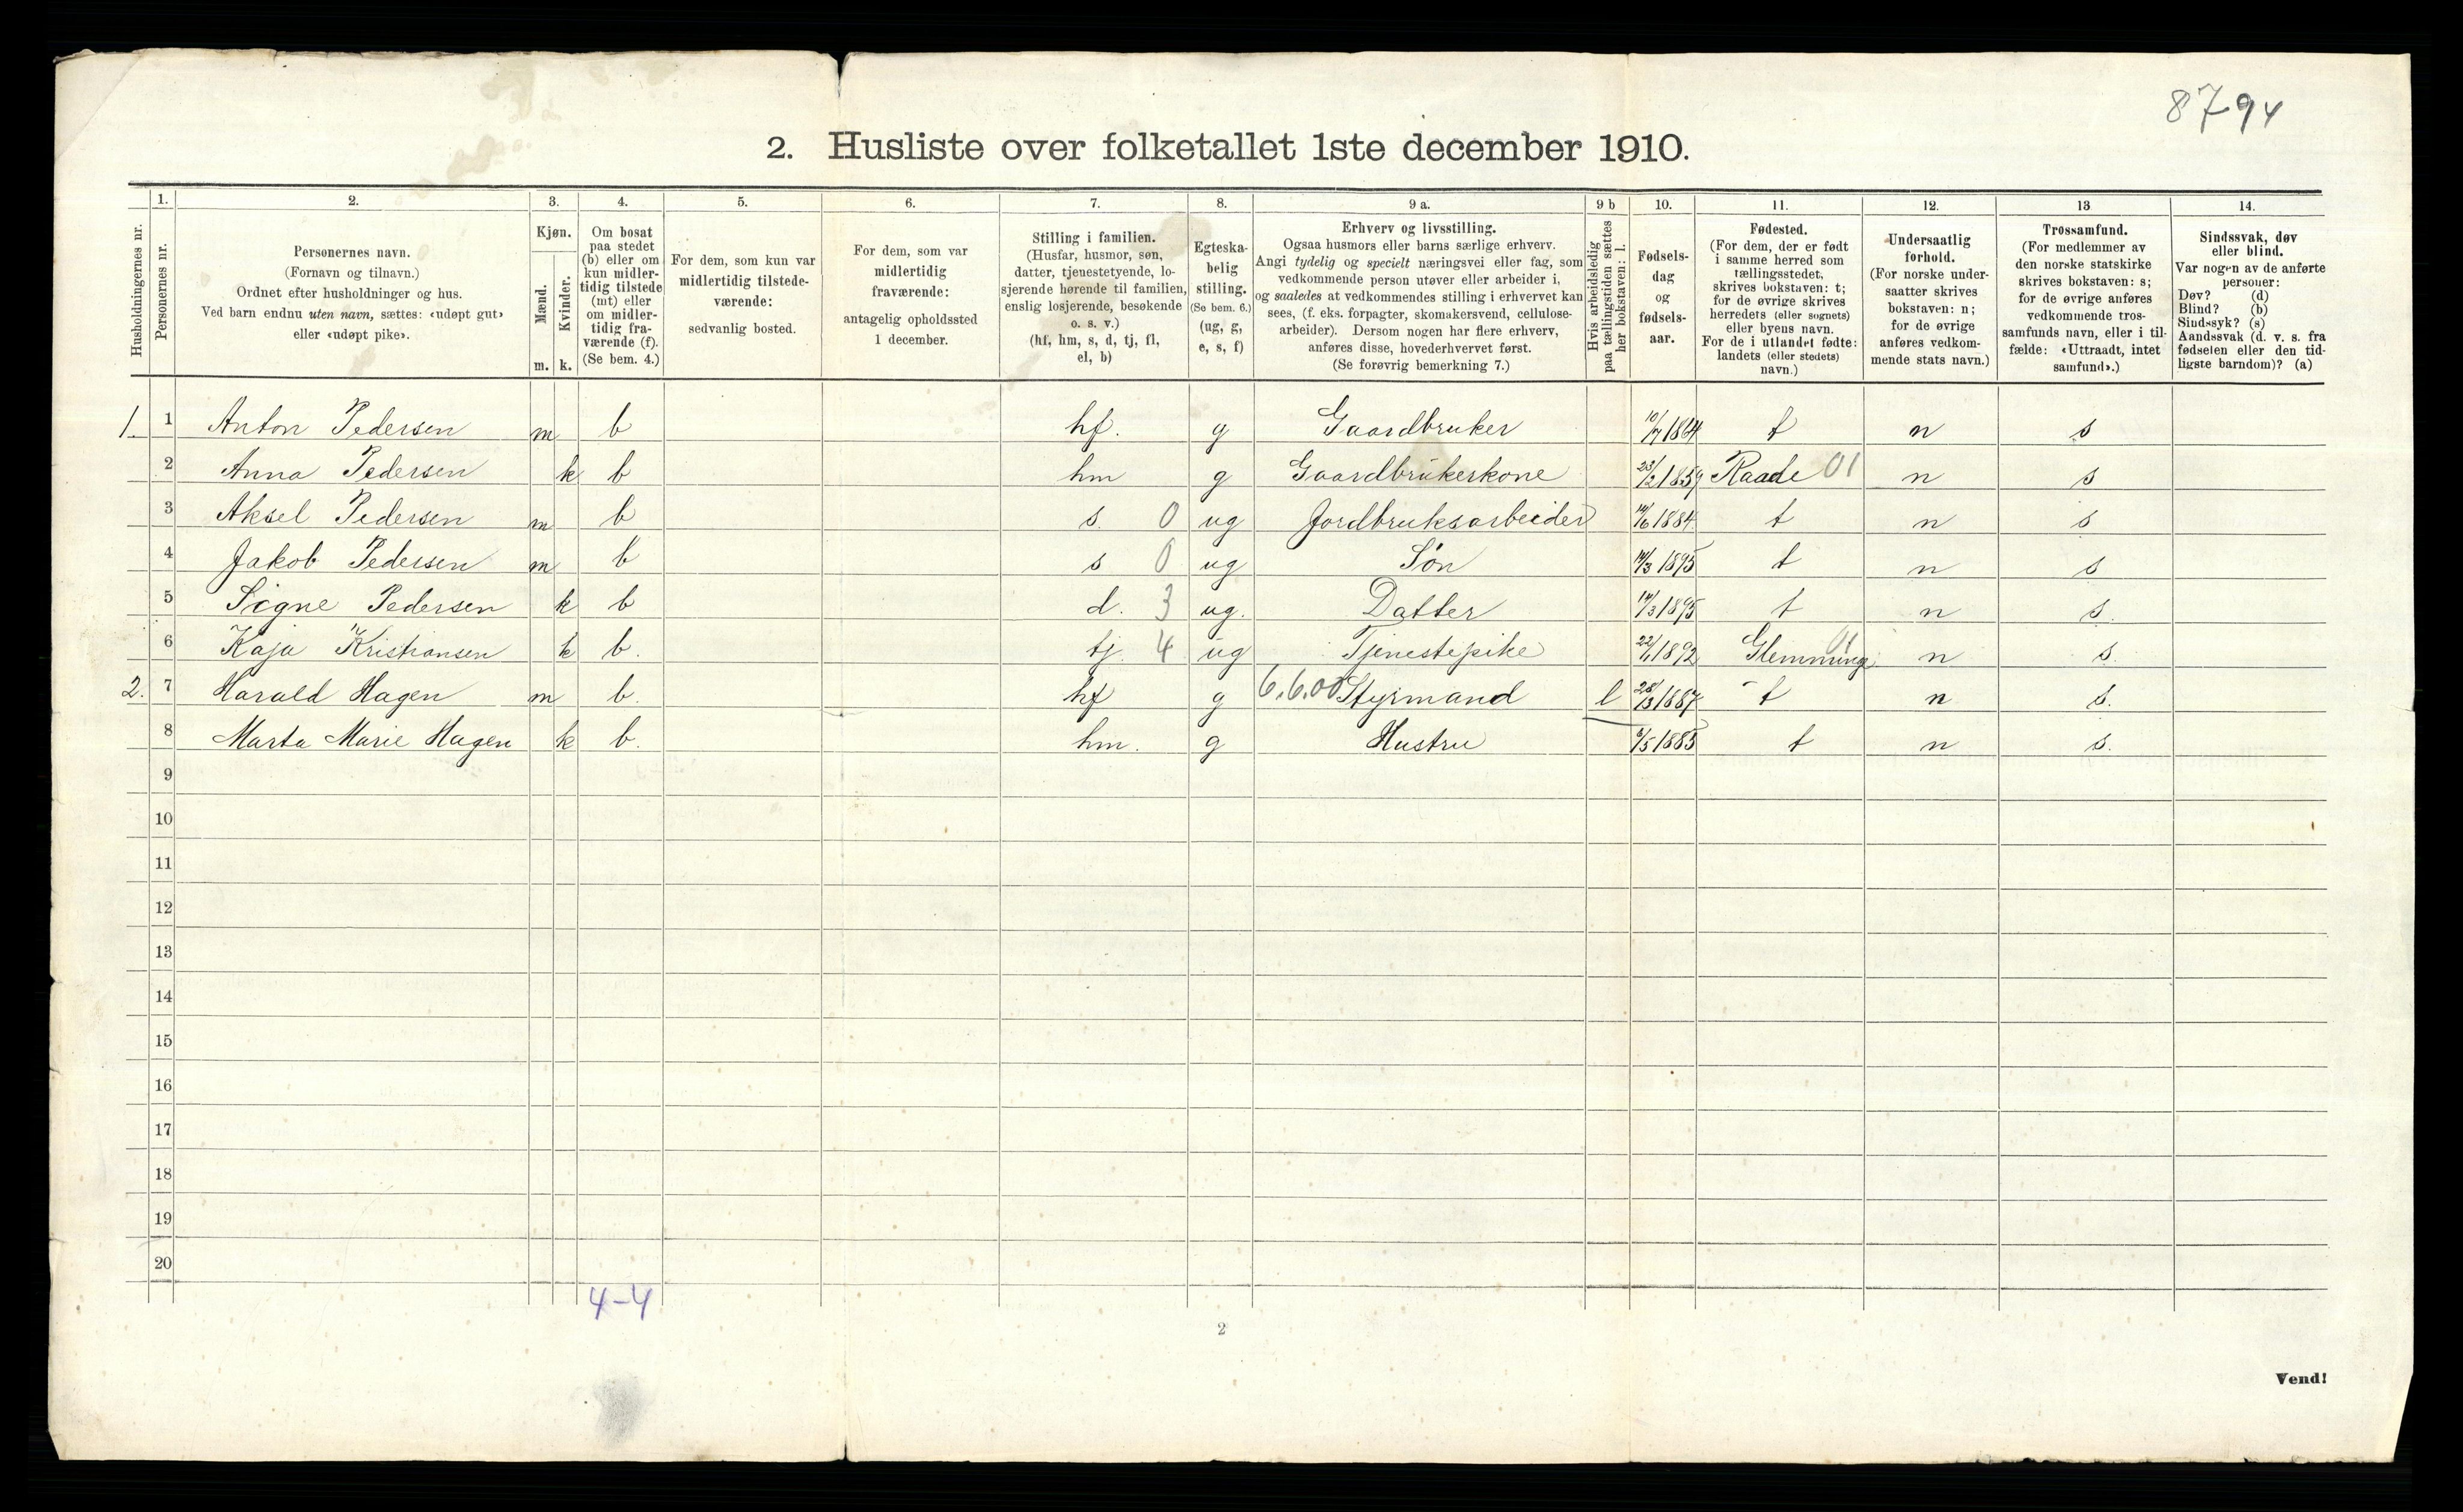 8794
2. Husliste over folketallet 1ste december 1910.
Husholdningernes nr.
1. Personernes nr.
2. Personernes navn. (Fornavn og tilnavn.) Ordnet efter husholdninger og hus. Ved barn endnu uten navn, sættes: «udøpt gut» eller «udøpt pike».
3. Kjøn. Mænd. m. Kvinder. k.
4. Om bosat paa stedet (b) eller om kun midlertidig tilstede (mt) eller om midlertidig fraværende (f). (Se bem. 4.)
5. For dem, som kun var midlertidig tilstedeværende: sedvanlig bosted.
6. For dem, som var midlertidig fraværende: antagelig opholdssted 1 december.
7. Stilling i familien. (Husfar, husmor, søn, datter, tjenestetyende, losjerende hørende til familien, enslig losjerende, besøkende o. s. v.) (hf, hm, s, d, tj, fl, el, b)
8. Egteskabelig stilling. (Se bem. 6.) (ug, g, e, s, f)
9 a. Erhverv og livsstilling. Ogsaa husmors eller barns særlige erhverv. Angi tydelig og specielt næringsvei eller fag, som vedkommende person utøver eller arbeider i, og saaledes at vedkommendes stilling i erhvervet kan sees, (f. eks. forpagter, skomakersvend, cellulosearbeider). Dersom nogen har flere erhverv, anføres disse, hovederhvervet først. (Se forøvrig bemerkning 7.)
9 b Hvis arbeidsledig paa tællingstiden sættes her bokstaven: l.
10. Fødselsdag og fødselsaar.
11. Fødested. (For dem, der er født i samme herred som tællingsstedet, skrives bokstaven: t; for de øvrige skrives herredets (eller sognets) eller byens navn. For de i utlandet fødte: landets (eller stedets) navn.)
12. Undersaatlig forhold. (For norske undersaatter skrives bokstaven: n; for de øvrige anføres vedkommende stats navn.)
13 Trossamfund. (For medlemmer av den norske statskirke skrives bokstaven: s; for de øvrige anføres vedkommende trossamfunds navn, eller i tilfælde: «Uttraadt, intet samfund».)
14. Sindssvak, døv eller blind. Var nogen av de anførte personer: Døv? (d) Blind? (b) Sindssyk? (s) Aandssvak (d. v. s. fra fødselen eller den tidligste barndom)? (a)
1. 1 Anton Pedersen m b hf. g Gaardbruker t n s
2 Anna Pedersen k b hm g Gaardbrukerkone 23/2 1859 Raade 01 n s
3 Aksel Pedersen m b s. 0 ug Jordbruksarbeider 14/6 1884. t n s
4 Jakob Pedersen m b s 0 ug Søn 14/3 1895 t n s
5 Signe Pedersen k b d. 3 ug. Datter 14/3 1895 t n s.
6 Kaja Kristiansen k b. tj. 4 ug Tjenestepike 1892 Glemminge 01 n s.
2. 7 Harald Hagen m b. hf g 6.6.00 Styrmand l 28/3 1887 t n s.
8 Marta Marie Hagen k b. hm. g Hustru 1885 t n s.
9
10
11
12
13
14
15
16
17
18
19
20
4-4
2
Vend!